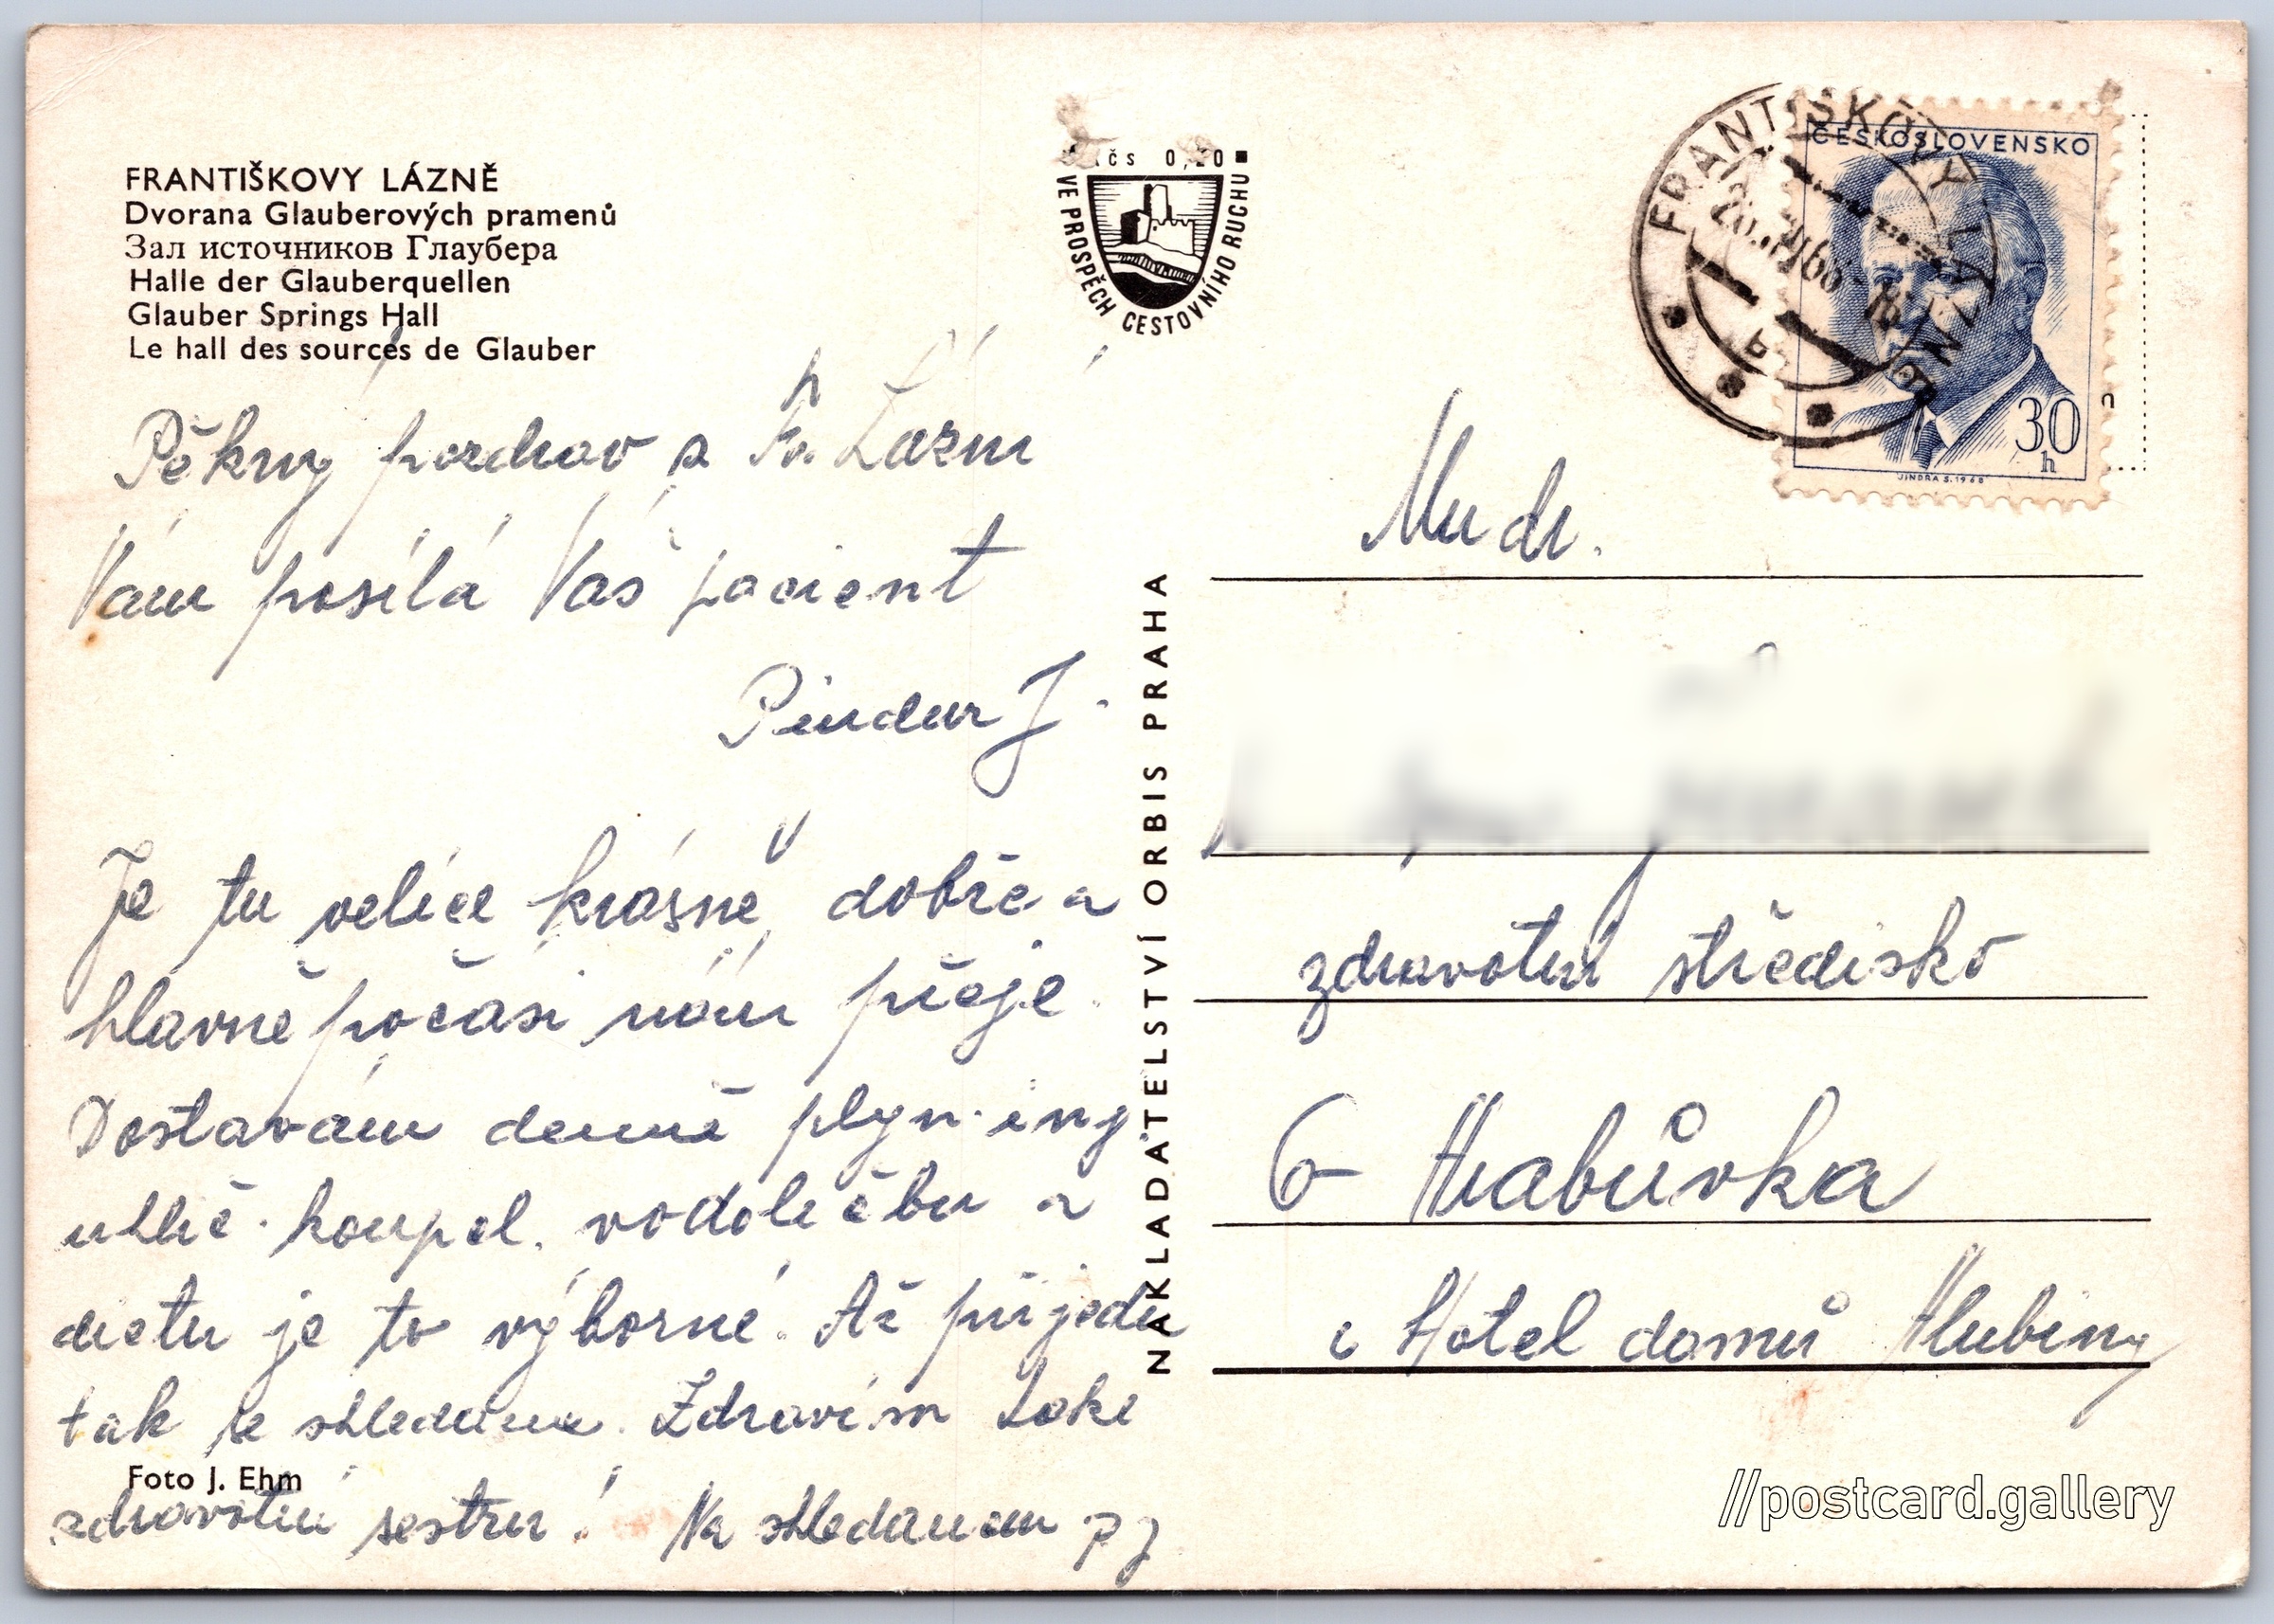 FRANTIŠKOVY LÁZNĚ
Dvorana Glauberových pramenů
Зал источников Глаубера
Halle der Glauberquellen
Glauber Springs Hall
Le hall des sources de Glauber
Pěkný pozdrav z Fr. Lázní
Vám posílá Váš pacient
Pindur J.
Je tu velice krásně, dobře a
hlavně počasí nám přeje.
Dostávám denně plyn. inj.
uhlič. koupel. vodoléčbu a
dietu je to výborné. Až přijedu
tak se shledáme. Zdravím také
Foto J. Ehm
zdravotní sestru! Na shledanou PJ
Kčs 0,20
VE PROSPĚCH CESTOVNÍHO RUCHU
NAKLADATELSTVÍ ORBIS PRAHA
FRANTIŠKOVY LÁZNĚ
ČESKOSLOVENSKO
30
h
JINDRA S. 1968
Mudr.
zdravotní středisko
Hrabůvka
Hotel domů Hlubiny
//postcard.gallery